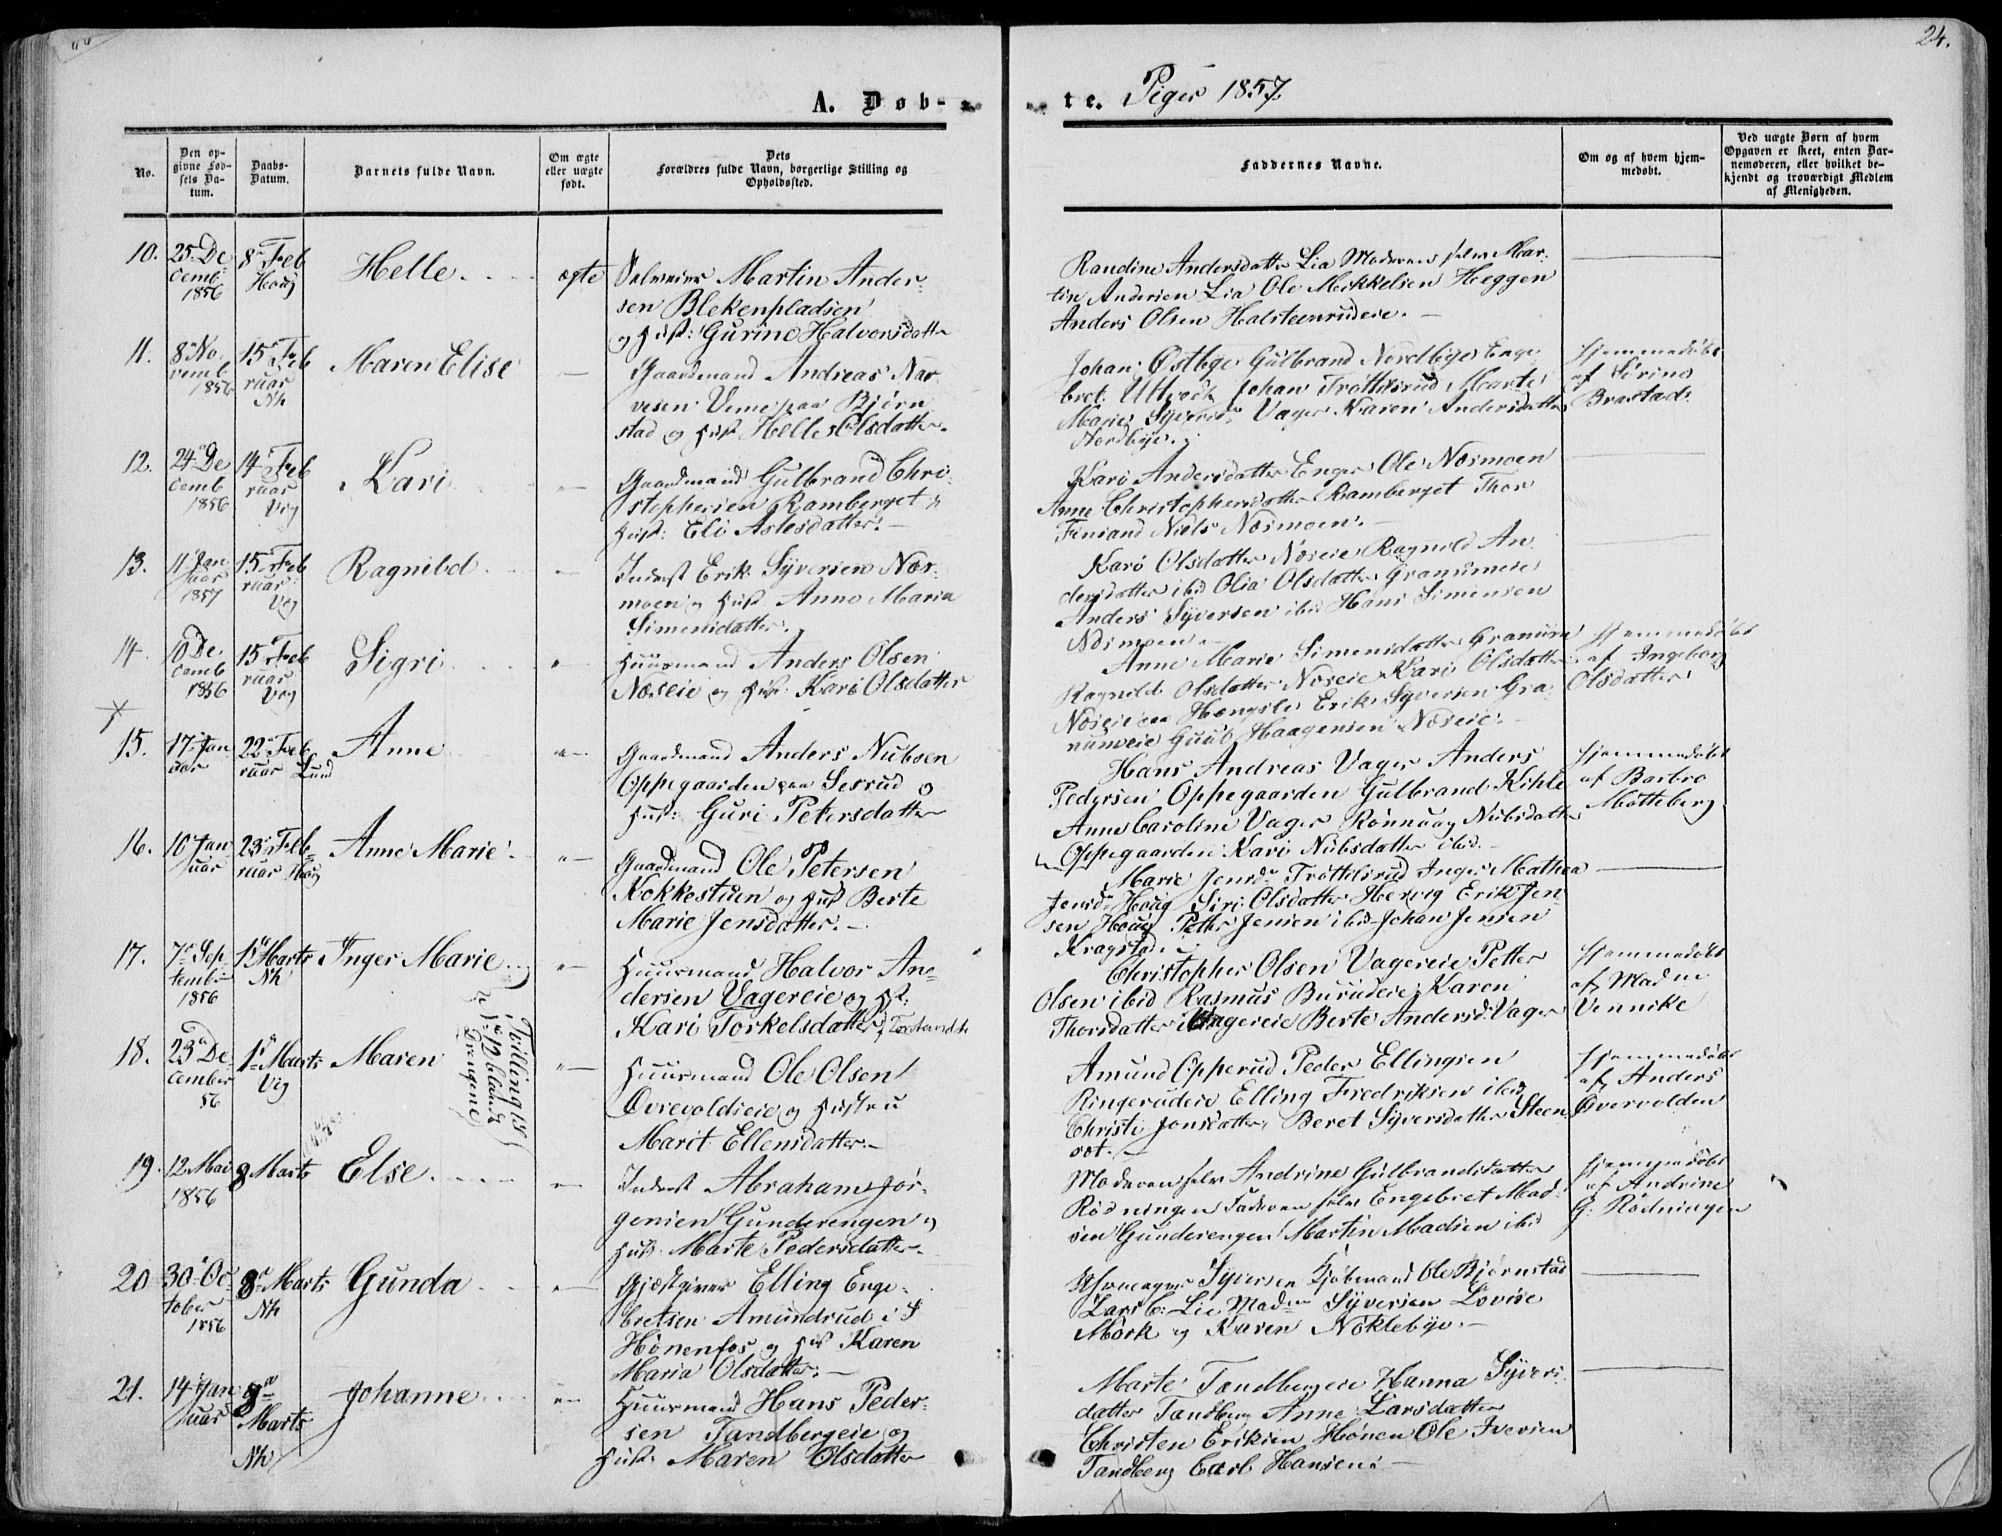 24.
A. Døb-
te. Piger 1857.
No.
Den op-
givne Fød-
sels Da-
tum.
Daabs-
Datum.
Barnets fulde Navn.
Om ægte
eller uægte
født.
Dets
Forældres fulde Navn, borgerlige Stilling og
Opholdssted.
Faddernes Navne.
Om og af hvem hjem-
medøbt.
Ved uægte Børn af hvem
Opgaven er skeet, enten Bar-
nemoderen, eller hvilket be-
kjendt og troværdigt Medlem
af Menigheden.
10.
25 De
cemb
1856
8 Feb
Houg
Helle
ægte
Selveier Martin Ander-
sen Blekenpladsen
og Hust: Gurine Halvorsdatter
Randine Andersdatter Lia Moderen selv Mar-
tin Andersen Lia Ole Mikkelsen Heggen
Anders Olsen Halsteensrudeie.
11.
8 No
vemb
1856
15 Feb
ruar
Nh
Maren Elise
Gaardmand Andreas Nar
vesen Veme paa Bjørn
stad og Hust Helle Olsdatter.
Johan Østbye Gulbrand Nordbye Enge
bret Ultvedt Johan Trøttelsrud Marte
Marie Syversdr Vager Karen Andersdatter
Nordbye.
Hjemmedøbt
af Sirine
Brastad
12.
24 De
cemb
1856
14 Feb
ruar
Veg
Kari
Gaardmand Gulbrand Chri-
stophersen Ramberget &
Hust: Eli Aslesdatter.
Kari Andersdatter Enger Ole Næsmoen
Anne Christophersdatter Ramberget Thor
Finsand Niels Næsmoen.
13.
11 Jan
uar
1857
15 Feb
ruar
Veg
Ragnild
Inderst Erik Syversen Næs-
moen og Hust Anne Maria
Simensdatter.
Kari Olsdatter Næseie Ragnild An
dersdatter ibid Olia Olsdatter Granumeie
Anders Syversen ibid Hans Simensen
Næsmoen
14.
10 De
cemb
1856
15 Feb
ruar
Veg
Sigri
Huusmand Anders Olsen
Næseie og Hust. Kari Olsdatter
Anne Marie Simensdatter Granum
Ragnild Olsdatter Næseie Kari Olsdatter
Næseie paa Hængsle Erik Syversen Gra
numeie Guul Haagensen Næseie.
Hjemmedøbt
af Ingeborg
Olsdatter
15.
17 Jan
uar
22 Feb
ruar Lund
Anne
Gaardmand Anders Nubsen
Oppegaarden paa Sesrud og
Hust: Guri Petersdatter
Hans Andreas Vager Anders
Pedersen Oppegaarden Gulbrand Kihle
Anne Caroline Vager Rønnaug Nubsdatter
Oppegaarden Kari Nubsdatter ibid.
Hjemmedøbt
af Barbro
Motteberg
16.
10 Jan
uar
23 Feb
ruar Houg
Anne Marie
Gaardmand Ole Petersen
Kokkestuen og Hust Berte
Marie Jensdatter.
Marie Jensdr Trøttelsrud Inger Mathea
Jensdr Houg Siri Olsdatter Hervig Erik Jen
sen Houg Petter Jensen ibid Johan Jensen
Kragstad
17.
7 Sep
tember
1856
1 Marts
Nh
Inger Marie
Huusmand Halvor An-
dersen Vagereie og Hst:
Kari Torkelsdatter
Christopher Olsen Vagereie Petter
Olsen ibid Rasmus Burudeie Karen
Thorsdatter Vagereie Berte Andersd. Vager
Hjemmedøbt
af Mad m
Vennike
18.
23 De
cember
56
1 Marts
Veg
Maren
Tvilling til
No 12 blandt
Drengene
Huusmand Ole Olsen
Øvrevoldseie og Hustru
Marit Ellensdatter.
Amund Opperud Peder Ellingsen
Ringerudeie Elling Fredriksen ibid
Christi Jonsdatter Beret Syversdatter Steen
Hjemmedøbt
af Anders
Øvervolden
19.
12 Mai
1856
8 Marts
Else
Inderst Abraham Jør-
gensen Gunderengen og
Hust. Marte Pedersdatter.
Moderen selv Andrine Gulbrandsdatter
Rødningen Faderen selv Engebret Mad-
sen Gunderengen Martin Madsen ibid
Hjemmedøbt
af Andrine
G. Rødningen
20
30 Oc-
tober
1856
8 Marts
Nh
Gunda
Gjæstgiver Elling Enge-
bretsen Amundrud i S
Hønenfos og Hust Karen
Maria Olsdatter.
Syversen Kjøbmand Ole Bjørnstad
Lars C: Lie Madm Syversen Lovise
Mørk og Karen Nøklebye.
21.
14 Jan
uar
8
Marts
Nh
Johanne
Huusmand Hans Peder-
sen Tandbergeie og
Hust. Maren Olsdatter
Marte Tandbergeie Hanna Syvers
datter Tandberg Anne Larsdatter
Christen Eriksen Hønen Ole Iversen
Tandberg Carl Hansen.